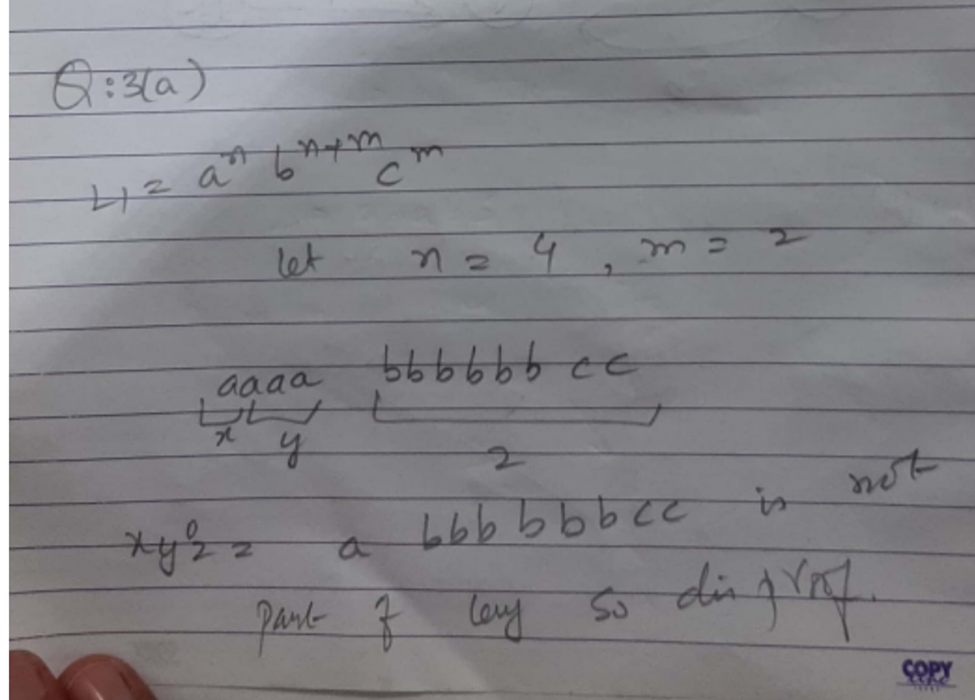 Q:3(a)
L1 = aⁿ bⁿ⁺ᵐ cᵐ
let n = 4 , m = 2
aaaa bbbbbb cc
x y z
xy⁰z = a bbbbbbcc is not
part of lang so disprof.
COPY